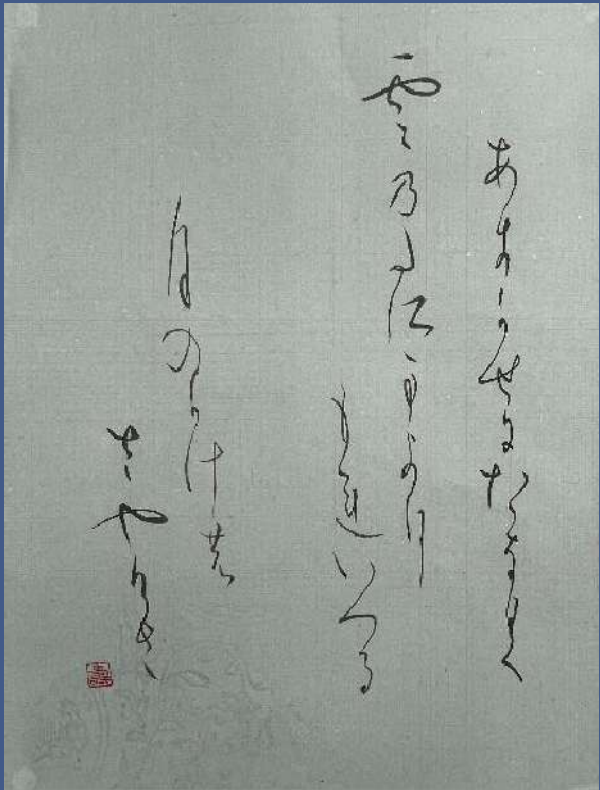 あきかせにたなひく
雲乃た江まより
もれいつる
月のかけの
さやけさ